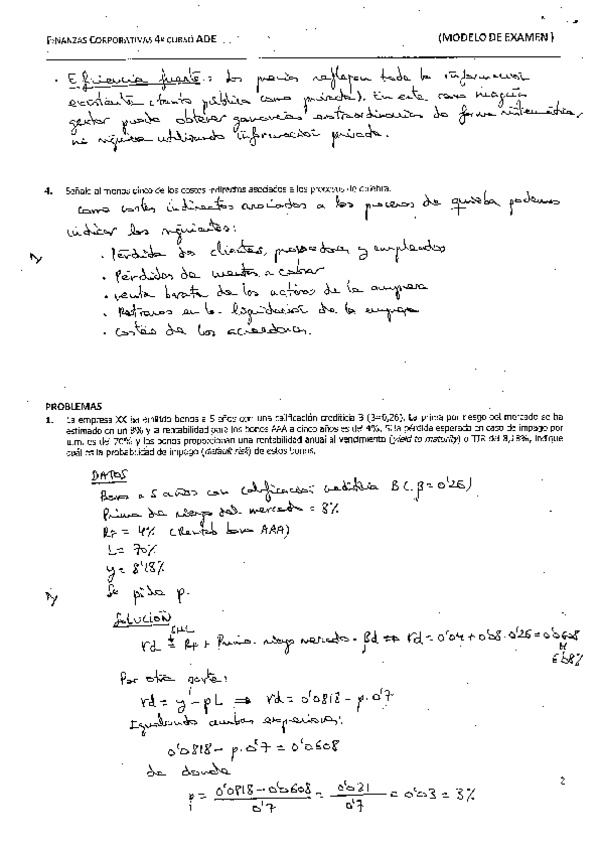 FINANZAS CORPORATIVAS 4º CURSO ADE (MODELO DE EXAMEN)
· Eficiencia fuerte: Los precios reflejan toda la información
existente (tanto pública como privada). En este caso ningún
gestor puede obtener ganancias extraordinarias de forma sistemática,
ni siquiera utilizando información privada.
4. Señale al menos cinco de los costes indirectos asociados a los procesos de quiebra.
Como costes indirectos asociados a los procesos de quiebra podemos
indicar los siguientes:
· Pérdida de clientes, proveedores y empleados
· Pérdidas de cuentas a cobrar
· Venta barata de los activos de la empresa
· Retrasos en la liquidación de la empresa
· Costes de los acreedores.
PROBLEMAS
1. La empresa XX ha emitido bonos a 5 años con una calificación crediticia B (β=0,26). La prima por riesgo del mercado se ha
estimado en un 8% y la rentabilidad para los bonos AAA a cinco años es del 4%. Si la pérdida esperada en caso de impago por
u.m. es del 70% y los bonos proporcionan una rentabilidad anual al vencimiento (yield to maturity) o TIR del 8,18%, indique
cuál es la probabilidad de impago (default risk) de estos bonos.
DATOS
Bonos a 5 años con calificación crediticia B (β=0'26)
Prima de riesgo del mercado = 8%
Rf = 4% (Rentab bono AAA)
L = 70%
y = 8'18%
Se pide p.
SOLUCIÓN
rd = Rf + Prima riesgo mercado · βd ⇔ rd = 0'04 + 0'08 · 0'26 = 0'0608
6'08%
Por otra parte:
rd = y - pL ⇒ rd = 0'0818 - p · 0'7
Igualando ambas expresiones:
0'0818 - p · 0'7 = 0'0608
de donde
p = (0'0818 - 0'0608) / 0'7 = 0'021 / 0'7 = 0'03 = 3%
2